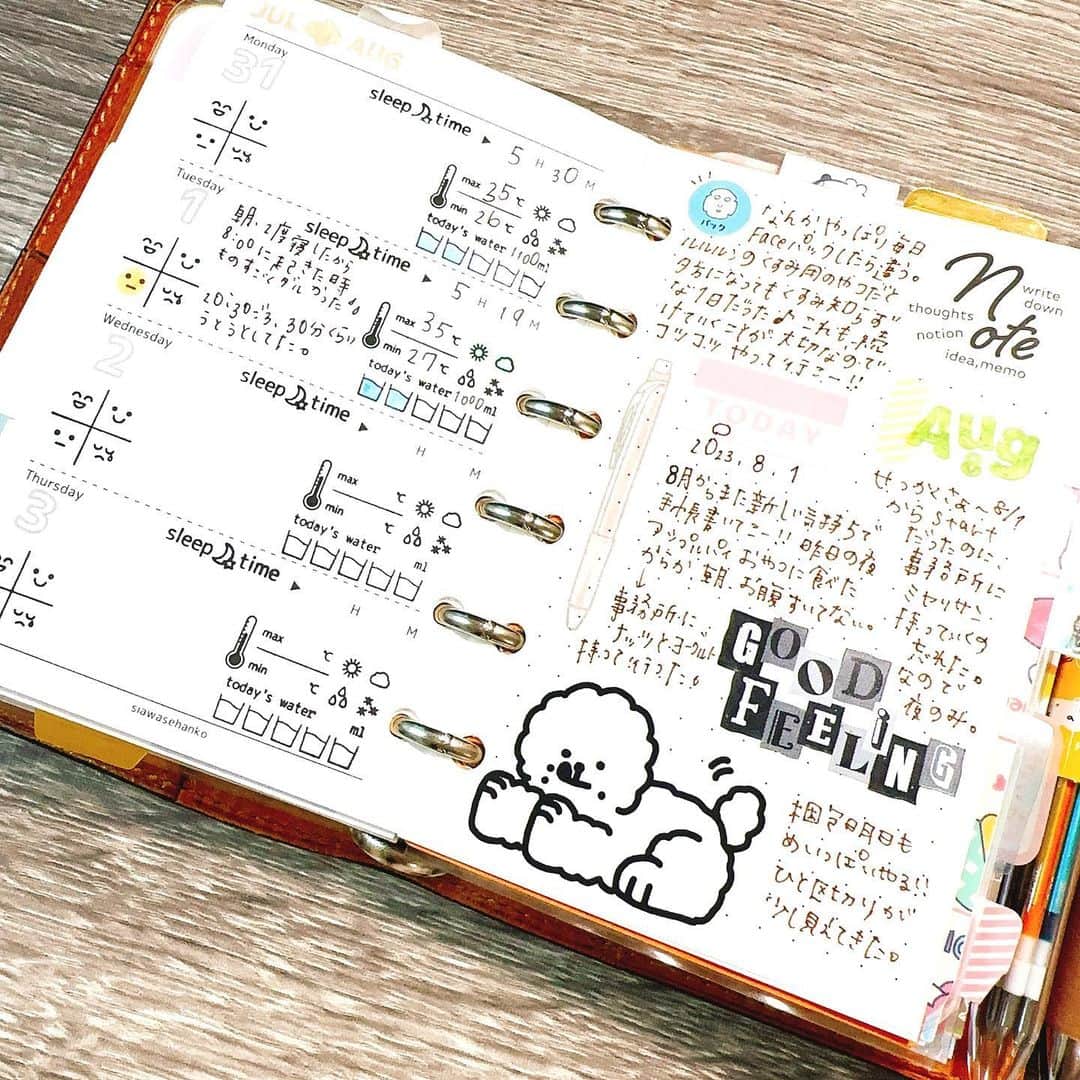 JUL AUG
Monday
31
sleep time
5 H 30 M
max 35℃
min 26℃
today's water 1100ml
Tuesday
1
朝、2度寝したから
8:00に起きた時
ものすごくダルかった
20:30ごろ、30分くらい
うとうとしてた。
sleep time
5 H 19 M
max 35℃
min 27℃
today's water 1000ml
Wednesday
2
sleep time
H M
max ℃
min ℃
today's water ml
Thursday
3
sleep time
H M
max ℃
min ℃
today's water ml
siawasehanko
パック
なんかやっぱり毎日
Faceパックしたら違う。
ルルルンのくすみ用のやつだと
夕方になってもくすみ知らず
な1日だった♪これも続
けていくことが大切なので
コツコツやって行こー!!
Note
write
down
thoughts
notion
idea,memo
TODAY
2023.8.1
8月からまた新しい気持ちで
手帳書いてこー!!昨日の夜
アップルパイおやつに食べた
からか、朝、お腹すいてない。
↓
事務所に
ナッツとヨーグルト
持って行った。
Aug
8
せっかくさぁ〜8/1
から Start
だったのに、
事務所に
ミヤリサン
持っていくの
忘れた。
なので
夜のみ。
GOOD
FEELiNG
明日も
めいっぱいやる!!
ひと区切りが
少し見えてきた。